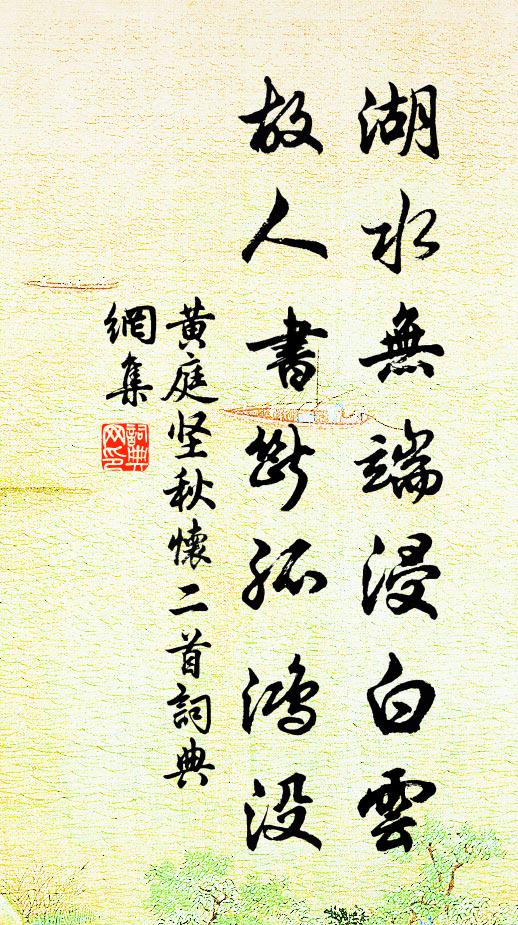 湖水無端浸白雲
故人書斷孤鴻没
黄庭坚秋懷二首詞典
網集
詞典網印